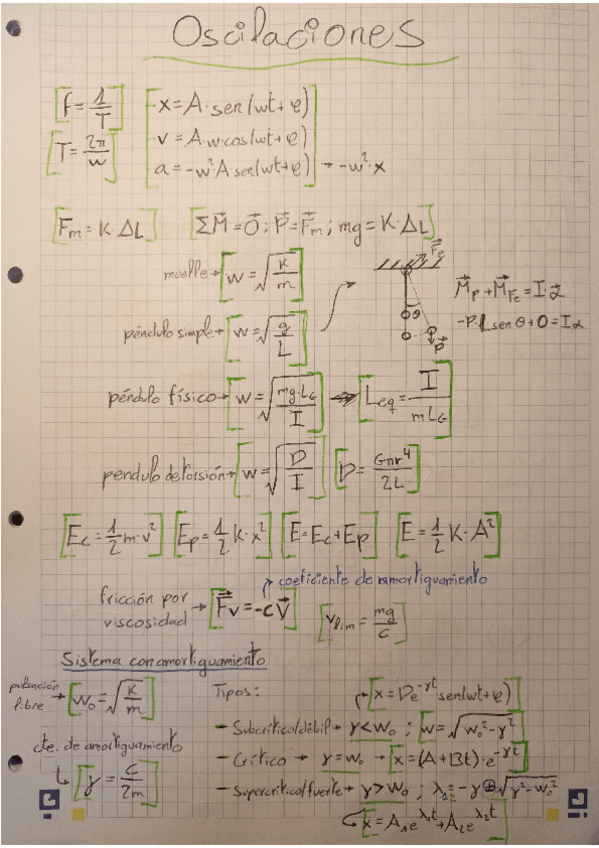 Oscilaciones
f = 1/T
T = 2π/w
x = A · sen(wt + φ)
v = A · w · cos(wt + φ)
a = -w² A sen(wt + φ) → -w² · x
Fm = K · ΔL
ΣM⃗ = 0⃗ ; P⃗ = F⃗m ; mg = K · ΔL
muelle → w = √(K/m)
F⃗e
M⃗P + M⃗Fe = I · α⃗
-P · L sen θ + 0 = Iα
θ
P⃗
péndulo simple → w = √(g/L)
péndulo físico → w = √(mg · LG / I) → Leq = I / mLG
pendulo de torsión → w = √(D/I) D = Gπr⁴ / 2L
Ec = 1/2 m · v² Ep = 1/2 k · x² E = Ec + Ep E = 1/2 K · A²
coeficiente de amortiguamiento
fricción por viscosidad → F⃗v = -c v⃗ vlim = mg/c
Sistema con amortiguamiento
pulsación libre → w₀ = √(K/m)
Tipos:
x = De^(-γt) sen(wt + φ)
- Subcrítico/débil → γ < w₀ ; w = √(w₀² - γ²)
cte. de amortiguamiento
γ = c/2m
- Crítico → γ = w₀ → x = (A + Bt) · e^(-γt)
- Supercrítico/fuerte → γ > w₀ ; λ₁ = -γ ⊕ √(γ² - w₀²)
x = A₁e^(λ₁t) + A₂e^(λ₂t)